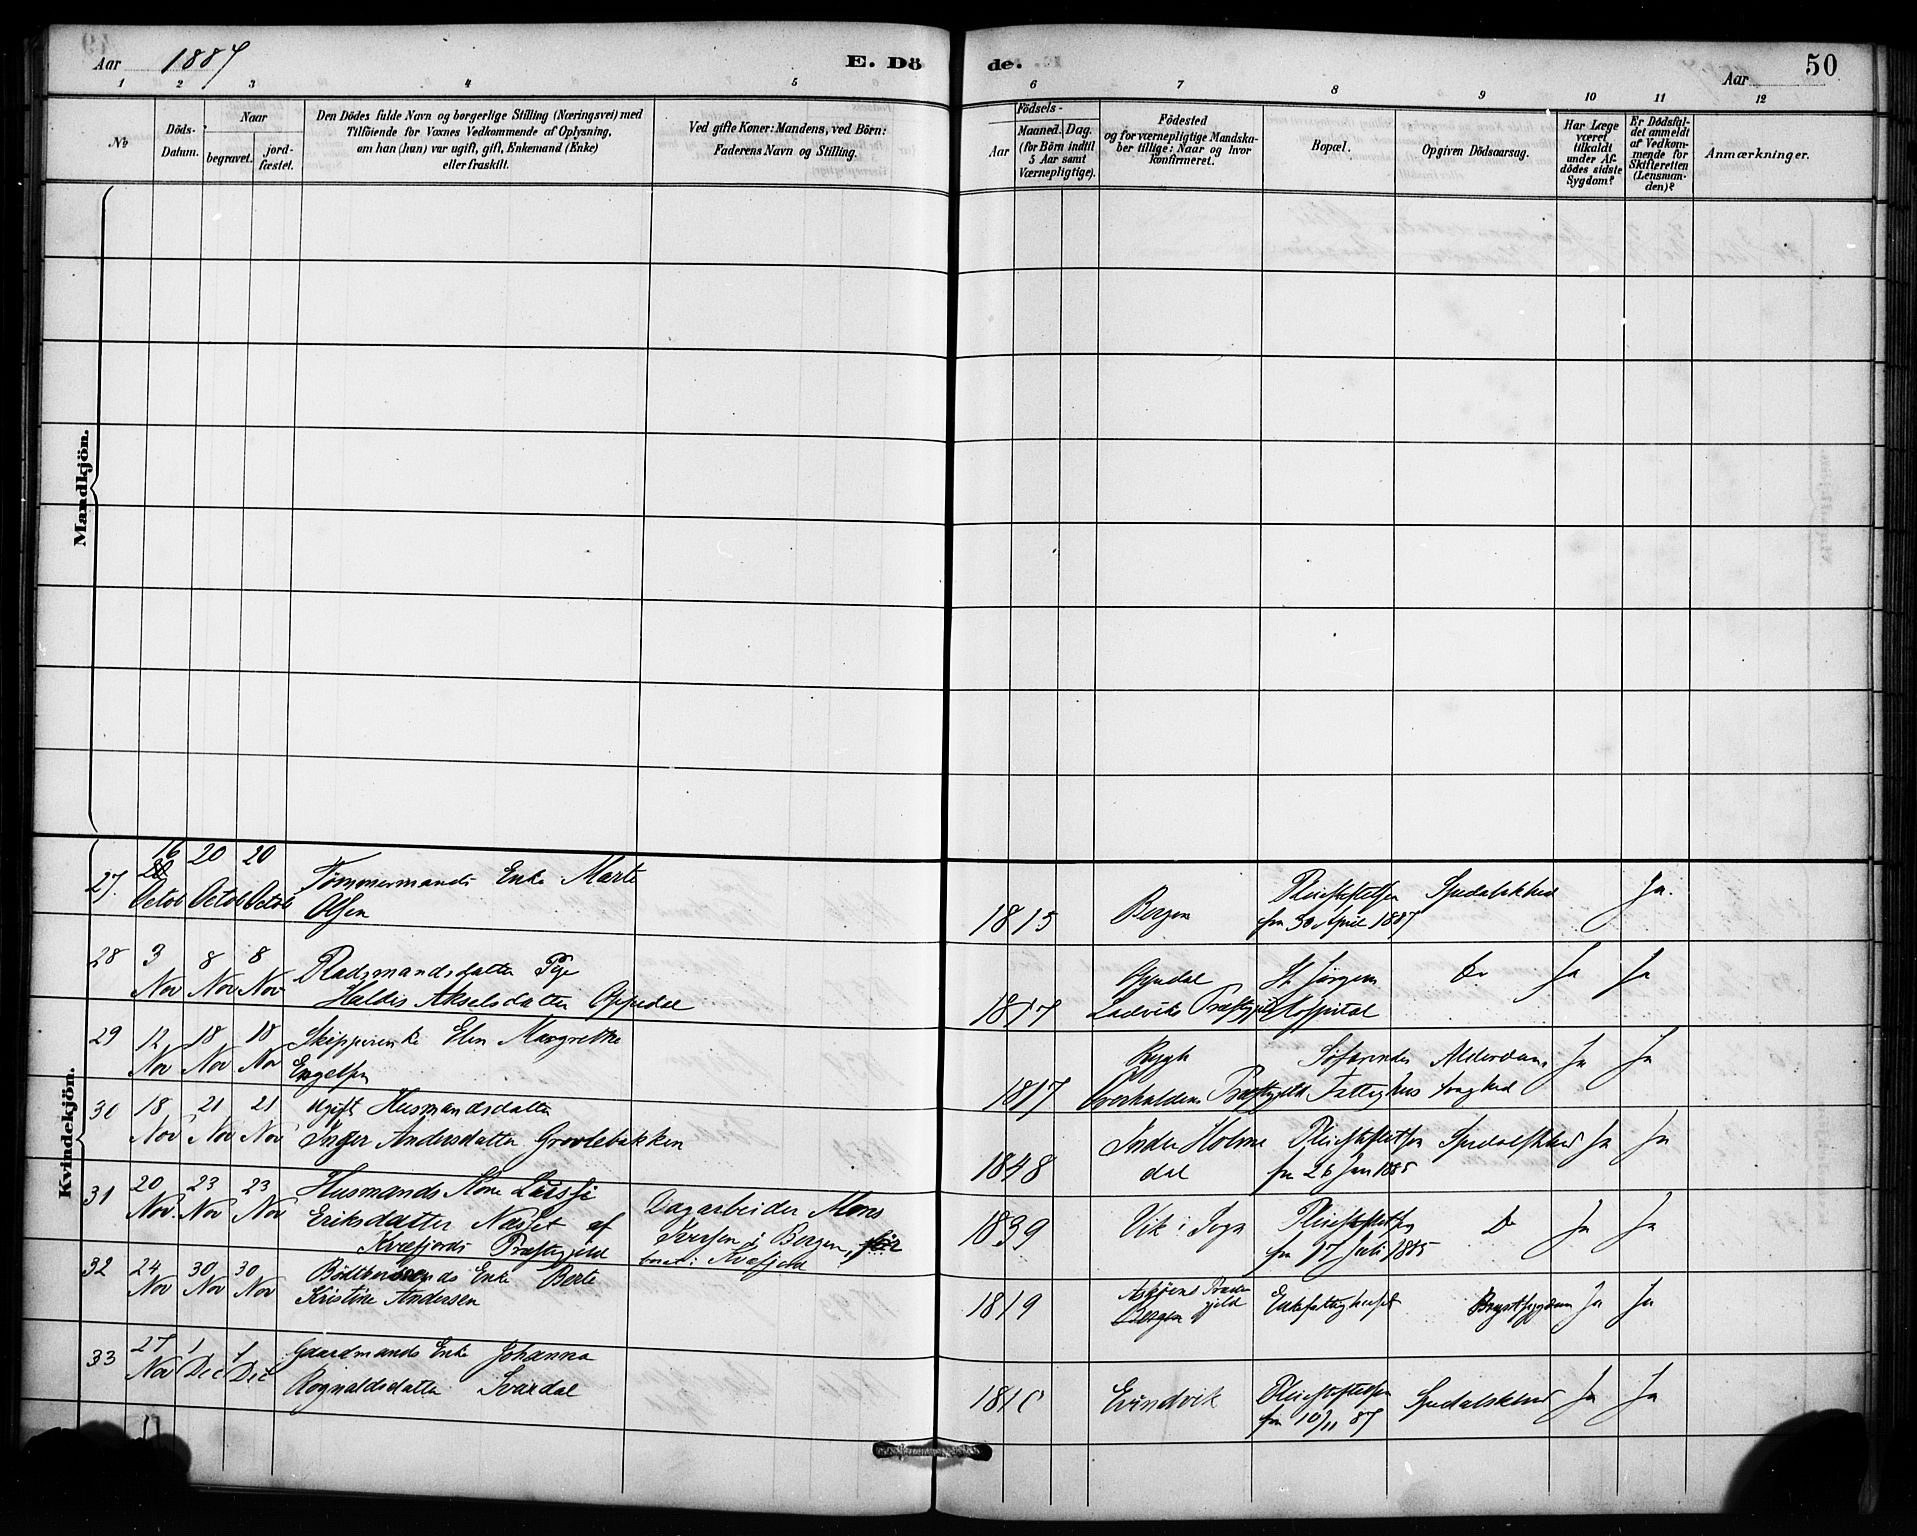 Aar 1887
E. Dö
de.
Aar
50
1 2 3 4 5 6 7 8 9 10 11 12
No
Döds-
Datum.
Naar
begravet.
jord-
fæstet.
Den Dödes fulde Navn og borgerlige Stilling (Næringsvei) med
Tilföiende for Voxnes Vedkommende af Oplysning,
om han (hun) var ugift, gift, Enkemand (Enke)
eller fraskilt.
Ved gifte Koner: Mandens, ved Börn:
Faderens Navn og Stilling.
Födsels-
Aar
Maaned. Dag.
(for Börn indtil
5 Aar samt
Værnepligtige).
Födested
og for værnepligtige Mandska-
ber tillige: Naar og hvor
konfirmeret.
Bopæl.
Opgiven Dödsaarsag.
Har Læge
været
tilkaldt
under Af-
dödes sidste
Sygdom?
Er Dödsfal-
det anmeldt
af Vedkom-
mende for
Skifteretten
(Lensman-
den)?
Anmærkninger.
Mandkjön.
Kvindekjön.
27. 16 Octob 20 Octob 20 Octob
Tømmermands Enke Marte
Olsen
1815 Bergen
Pleiestiftelsen
fra 30 April 1887
Spedalskhed Ja.
28 3 Nov 8 Nov 8 Nov
Pladsmandsdatter Pige
Haldis Akselsdatter Oppedal
1817 Oppedal
Ladviks Præstegjeld
St Jørgens
Hospital
Do Ja Ja
29 12 Nov 18 Nov 18 Nov
Skipperenke Elen Margrethe
Engelsen
1817
Overhaldens Præstegjeld
Søfarendes
Fattighus
Alderdoms
svaghed
Ja Ja
30 18 Nov 21 Nov 21 Nov
Ugift Husmandsdatter
Inger Andersdatter Grovlebakken
1848 Indre Holme
dal
Pleiestiftelsen
fra 26 Jan 1885
Spedalskhed Ja Ja
31 20 Nov 23 Nov 23 Nov
Husmands Kone
Eriksdatter Næsset af
Kvæfjords Præstegjeld
Dagarbeider Mons
Iversen i Bergen, før
boret i Kvæfjord
1839 Vik i Sogn
Pleiestiftelsen
fra 17 Juli 1885
Do Ja Ja
32 24 Nov 30 Nov 30 Nov
Bødkersvends Enke Berte
Kristine Andersen
1819 Askøens Præste
gjeld
Bergen
Enkefattighuset Brystsygdom Ja Ja
33 27 Nov 1 Dec 1 Dec
Gaardmands Enke Johanna
Rognaldsdatter Svardal
1810 Evindvik
Pleiestiftelsen
fra 10/11 87
Spedalskhed Ja Ja